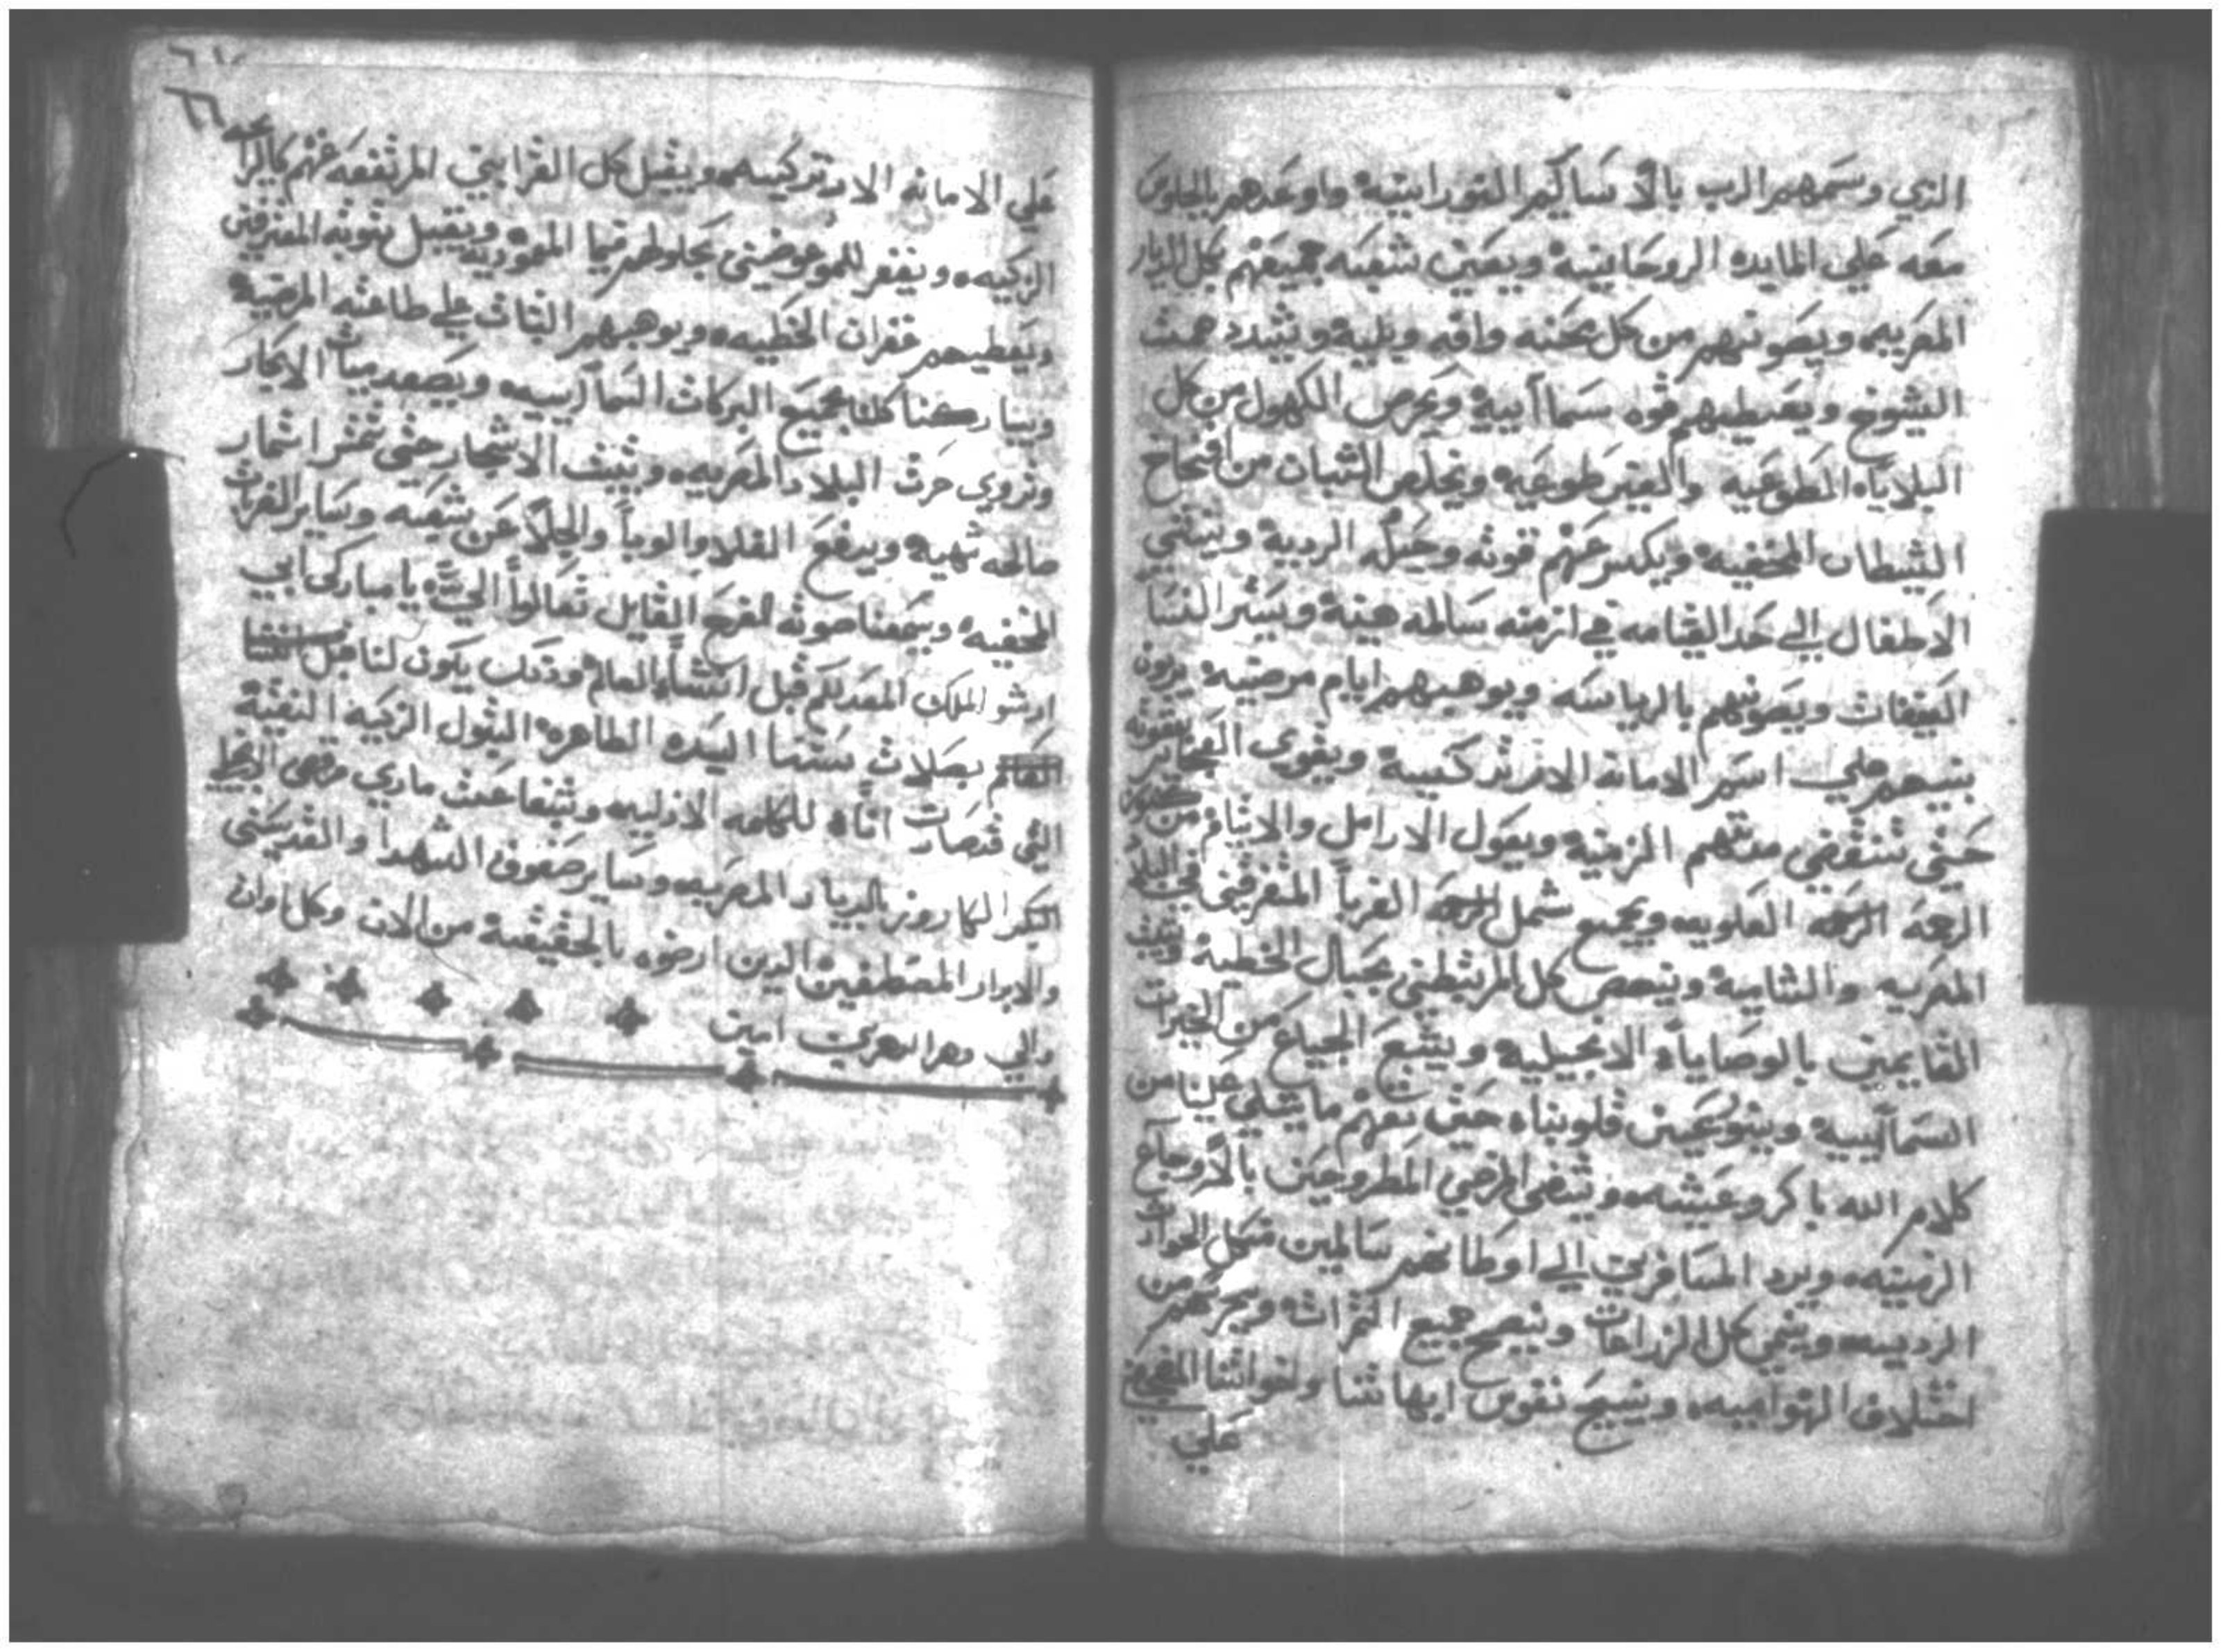 الذي وسمهم الرب بالاساكيم النورانيه واوعدهم بالجلوس
معه علي المايده الروحانيه ويعين شعبه جميعهم بكل الديار
المصريه ويصونهم من كل محنه وافه وبليه ويشدد همت
الشيوخ ويعطيهم قوه سماآييه ويحرص الكهول من كل
البلاياه المطوعيه والغير طوعيه ويخلص الشبان من افخاخ
الشيطان المخفيه ويكسر عنهم قوته وحيله الرديه وينشي
الاطفال الي حد القيامه في ازمنه سالمه هينه ويستر النسا
العفيفات ويصونهم بالرياسه ويوهبهم ايام مرضيه يربون
بنيهم علي اسم الامانه الارتدكسيه ويقوي العجايز
حتي تنقضي مدتهم الزمنيه ويعول الارامل والايتام من كنوز
الرحمه العلويه ويجمع شمل الغربا المتفرقين في البلاد
المصريه والشاميه ويحص كل المرتبطين بحبال الخطيه ويثبت
القايمين بالوصاياه الانجيليه ويشبع الجياع من الخيرات
السمآييه وينور عيون قلوبناه حتي نفهم ما يتلي علينا من
كلام الله باكر وعشيه ويشفي المرضي المطروحين بالاوجاع
الزمنيه ويرد المسافرين الي اوطانهم سالمين من كل الحوادث
الرديه وينمي كل الزراعات وينجح جميع الثمرات ويحرسهم من
اختلاف الهواييه وينيح نفوس ابهاتنا واخواتنا المنيحين
علي
٦٦
علي الامانه الارتدكسيه ويقبل كل القرابين المرتفعه عنهم كالرايحه
الزكيه ويغفر للموعوضين بجلوطهم قيما المعموديه ويقبل توبة المعترفين
ويعطيهم غفران الخطيه ويوهبهم الثبات علي طاعته المرضيه
ويباركنا كلنا بجميع البركات السمآييه ويصعد مياث الابحار
وتروي حرث البلاد المصريه ويثبت الاشجار حتي تثمر اثمار
صالحه شهيه ويدفع الغلا والوبأ والجلا عن شعبه وساير الضربات
المخفيه ويسمعنا صوته الفرح القايل تعالوا الي يا مباركي ابي
ارثو الملك المعد لكم قبل انشاء العالم وذلك يكون لنا
بصلات ستنا السيده الطاهره البتول الزكيه النقيه
التي قد صارت اناه للكلمه الازليه وشفاعت ماري مرقس الانجيلي
الكاروز بالديار المصريه وساير صفوف الشهدا والقديسين
والابرار المصطفين الذين ارضوه بالحقيقيه من الان وكل اوان
والي دهر الدهرين امين